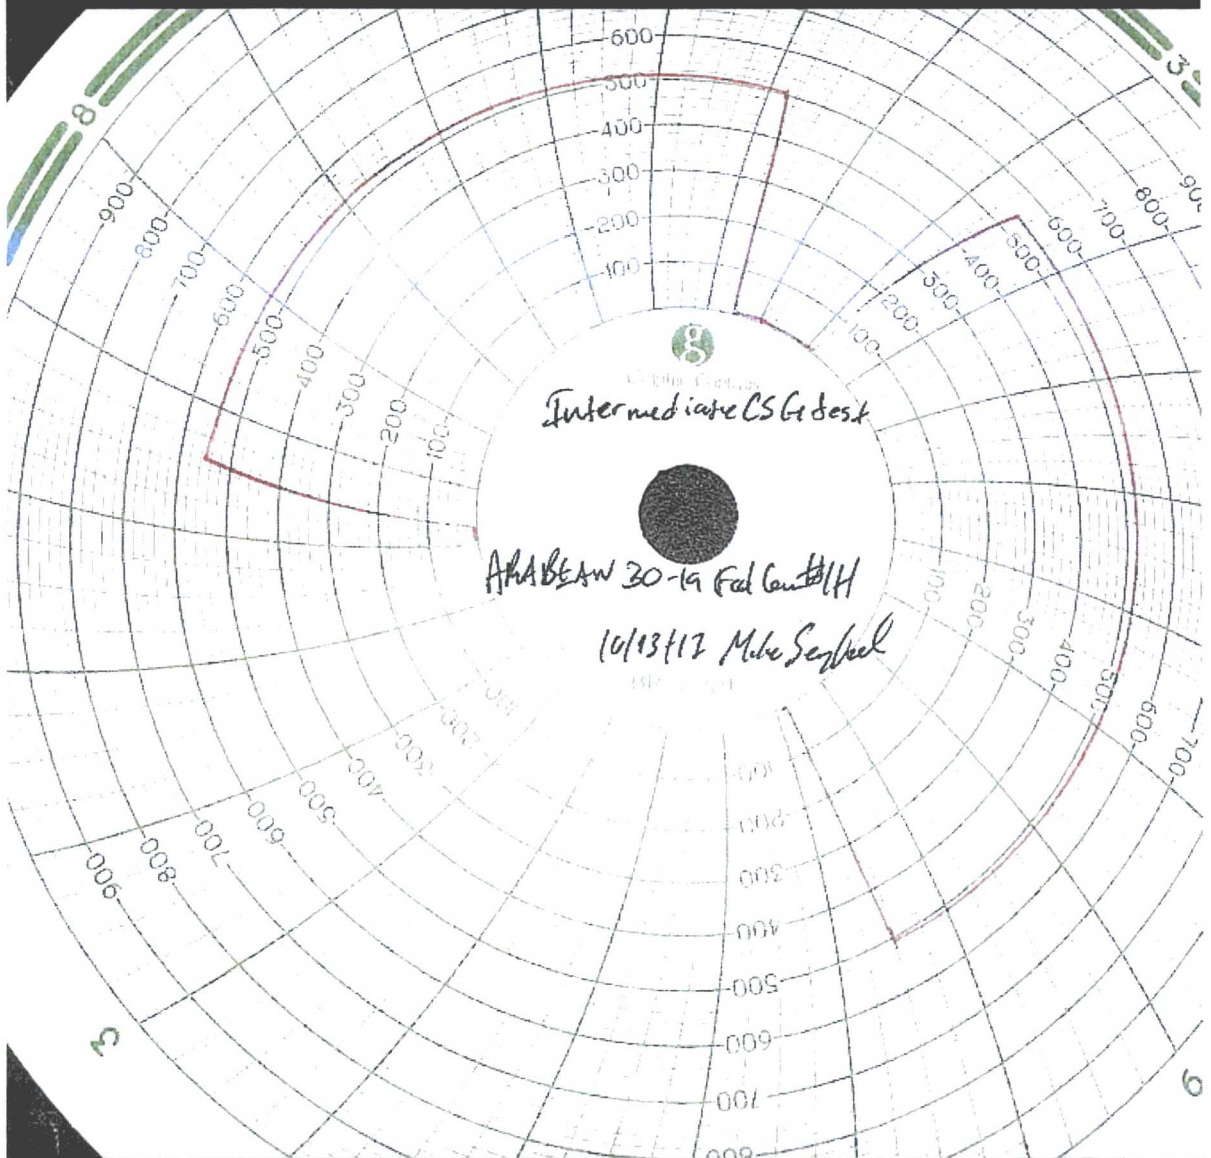 600
500
400
300
200
100
900
800
700
600
500
400
300
200
100
900
800
700
600
500
400
300
200
100
8
3
g
Intermediate CSG test
30-19 Fed Com #1H
10/13/17 Mike
100
200
300
400
500
600
700
100
200
300
400
500
600
700
800
200
300
400
500
600
700
800
900
3
9